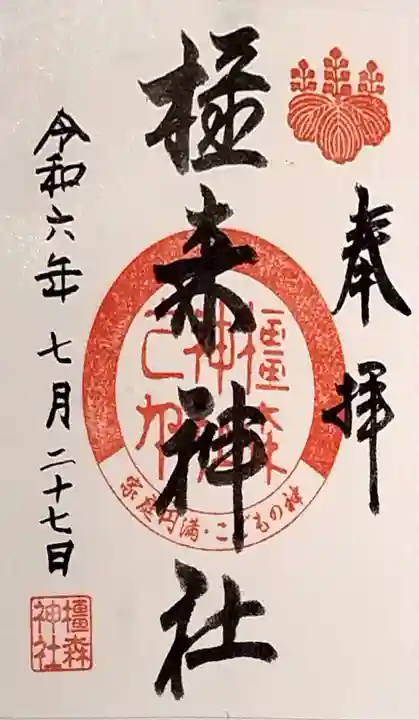 奉拝
橿森神社
橿森神社之印
家庭円満・こどもの神
令和六年 七月二十七日
橿森神社